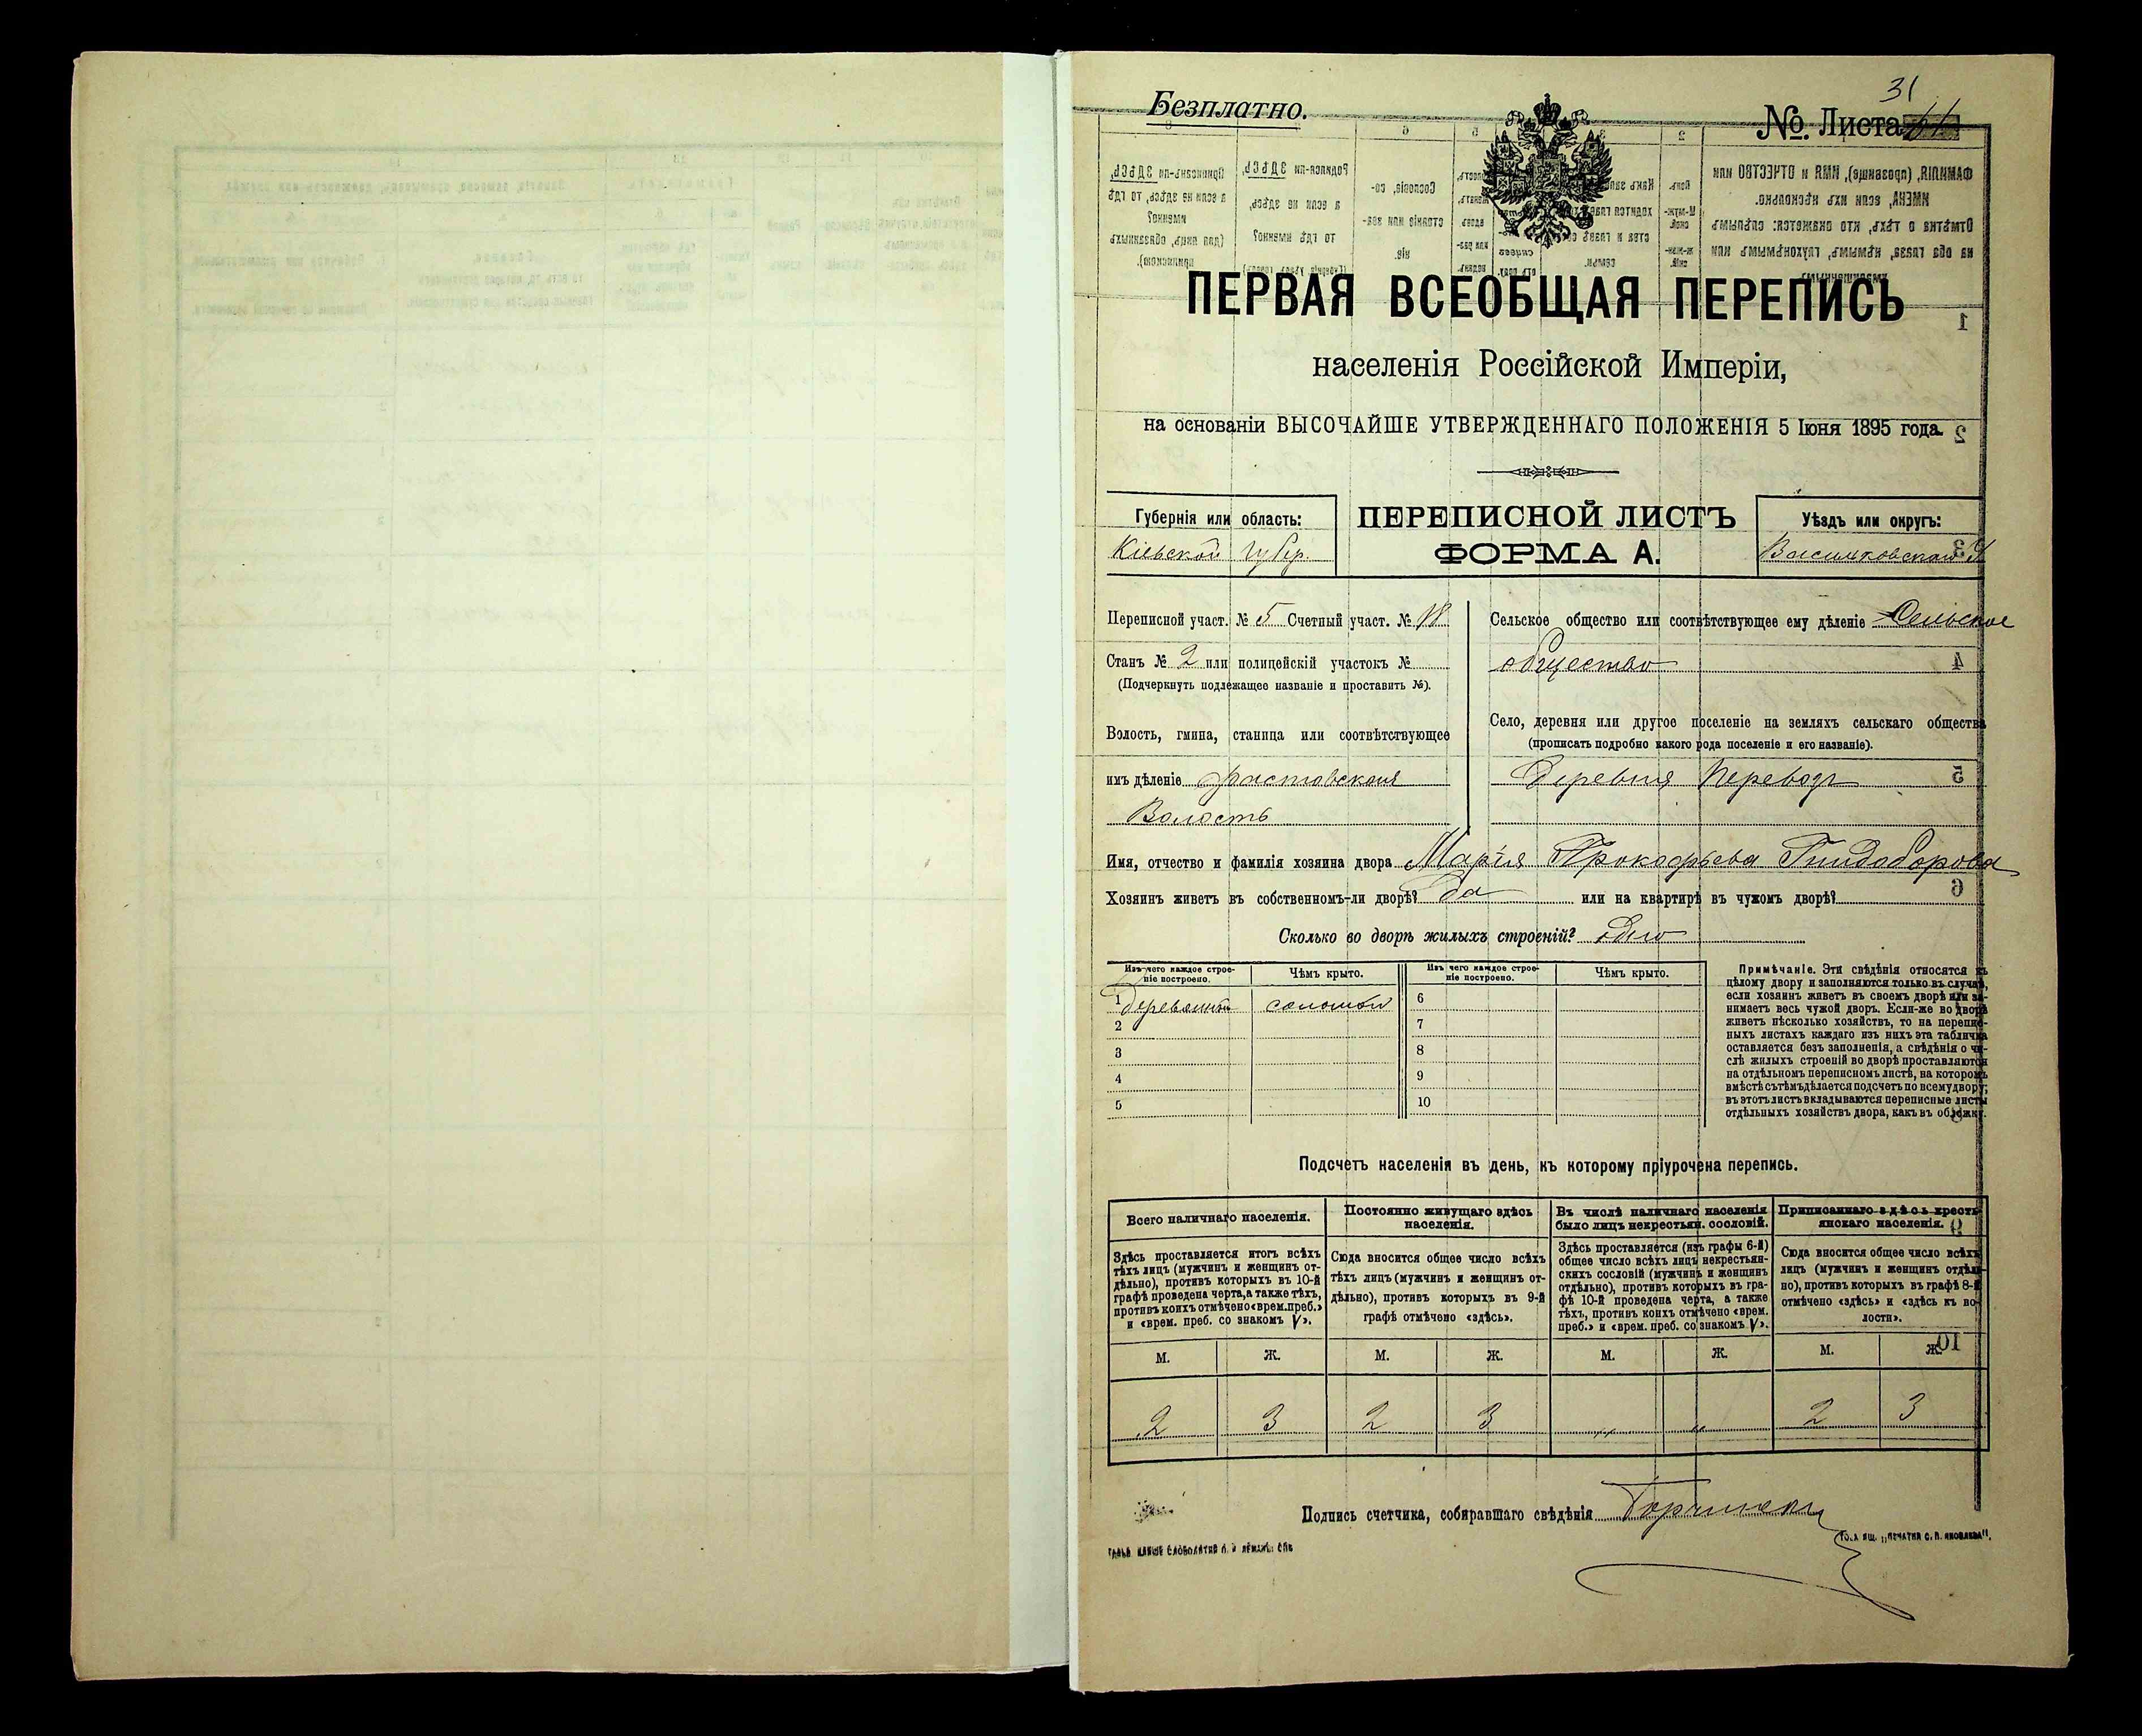 31
Безплатно.
№. Листа 61
ПЕРВАЯ ВСЕОБЩАЯ ПЕРЕПИСЬ
населенія Россійской Имперіи,
на основаніи ВЫСОЧАЙШЕ УТВЕРЖДЕННАГО ПОЛОЖЕНІЯ 5 Іюня 1895 года.
Губернія или область:
Кіевской Губер.
ПЕРЕПИСНОЙ ЛИСТЪ
ФОРМА А.
Уѣздъ или округъ:
Васильковскаго У
Переписной участ. № 5 Счетный участ. № 18
Станъ № 2 или полицейскій участокъ №
(Подчеркнуть подлежащее названіе и проставить №).
Волость, гмина, станица или соотвѣтствующее
имъ дѣленіе Фастовская
Волость
Сельское общество или соотвѣтствующее ему дѣленіе Сельское
общество
Село, деревня или другое поселеніе на земляхъ сельскаго общества
(прописать подробно какого рода поселеніе и его названіе).
Деревня Переводъ
Имя, отчество и фамилія хозяина двора Марія Прокофьева
Хозяинъ живетъ въ собственномъ-ли дворѣ? да или на квартирѣ въ чужомъ дворѣ?
Сколько во дворѣ жилыхъ строеній? одно
Изъ чего каждое строе-
ніе построено.
Чѣмъ крыто.
Изъ чего каждое строе-
ніе построено.
Чѣмъ крыто.
1 деревянный соломой 6
2 7
3 8
4 9
5 10
Примѣчаніе. Эти свѣдѣнія относятся къ
цѣлому двору и заполняются только въ случаѣ,
если хозяинъ живетъ въ своемъ дворѣ или за-
нимаетъ весь чужой дворъ. Если-же во дворѣ
живетъ нѣсколько хозяйствъ, то на перепис-
ныхъ листахъ каждаго изъ нихъ эта табличка
оставляется безъ заполненія, а свѣдѣнія о чи-
слѣ жилыхъ строеній во дворѣ проставляются
на отдѣльномъ переписномъ листѣ, на которомъ
вмѣстѣ съ тѣмъ дѣлается подсчетъ по всему двору;
въ этотъ листъ вкладываются переписные листы
отдѣльныхъ хозяйствъ двора, какъ въ обложку.
Подсчетъ населенія въ день, къ которому пріурочена перепись.
Всего наличнаго населенія.
Здѣсь проставляется итогъ всѣхъ
тѣхъ лицъ (мужчинъ и женщинъ от-
дѣльно), противъ которыхъ въ 10-й
графѣ проведена черта, а также тѣхъ,
противъ коихъ отмѣчено «врем. преб.»
и «врем. преб. со знакомъ V».
Постоянно живущаго здѣсь
населенія.
Сюда вносится общее число всѣхъ
тѣхъ лицъ (мужчинъ и женщинъ от-
дѣльно), противъ которыхъ въ 9-й
графѣ отмѣчено «здѣсь».
Въ числѣ наличнаго населенія
было лицъ некрестьян. сословій.
Здѣсь проставляется (изъ графы 6-й)
общее число всѣхъ лицъ некрестьян-
скихъ сословій (мужчинъ и женщинъ
отдѣльно), противъ которыхъ въ гра-
фѣ 10-й проведена черта, а также
тѣхъ, противъ коихъ отмѣчено «врем.
преб.» и «врем. преб. со знакомъ V».
Приписаннаго здѣсь кресть-
янскаго населенія.
Сюда вносится общее число всѣхъ
лицъ (мужчинъ и женщинъ отдѣль-
но), противъ которыхъ въ графѣ 8-й
отмѣчено «здѣсь» и «здѣсь къ во-
лости».
М. Ж. М. Ж. М. Ж. М. Ж.
2 3 2 3 „ „ 2 3
Подпись счетчика, собиравшаго свѣдѣнія